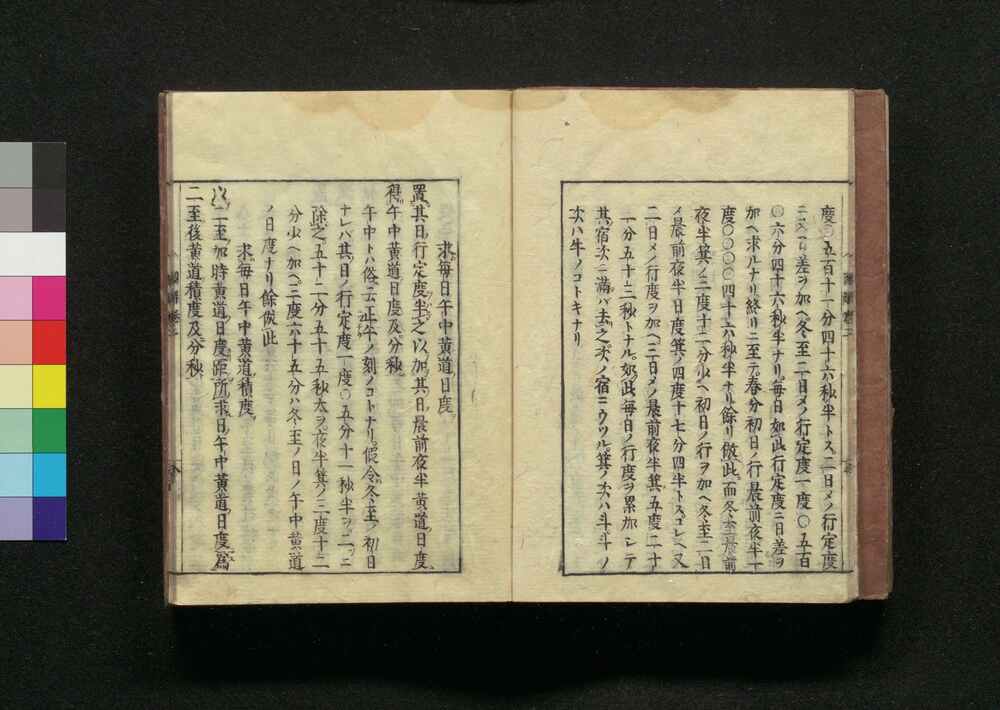 度〇五百十一分四十六秒半トス二日メノ行定度
ニ又日差ヲ加ヘ冬至二日メノ行定度一度〇五百
〇六分四十六秒半ナリ毎日如此行定度ニ日差ヲ
加ヘ求ルナリ終リニ至テ春分初日ノ行晨前夜半一
度〇〇〇〇四十六秒半ナリ餘リ倣此而冬至晨前
夜半箕ノ三度十二分少ヘ初日ノ行ヲ加ヘ冬至二日
メ晨前夜半日度箕ノ四度十七分四半トスコレヘ又
二日メノ行度ヲ加ヘ三日メノ晨前夜半箕五度二十
一分五十三秒トナル如此毎日ノ行度ヲ累加シテ
其宿次ニ滿バ去之次ノ宿ニウツル箕ノ次ハ斗斗ノ
次ハ牛ノコトキナリ
求毎日午中黄道日度
置其日行定度半之以加其日晨前夜半黄道日度
得午中黄道日度及分秒
午中トハ俗云正午ノ刻ノコトナリ假令冬至ノ初日
ナレバ其日ノ行定度一度〇五分十一秒半ヲ二ニ
除之五十二分五十五秒太ヲ夜半箕ノ三度十二
分少ヘ加ヘ三度六十五分ハ冬至ノ日ノ午中黄道
ノ日度ナリ餘倣此
求毎日午中黄道積度
以二至加時黄道日度距所求日午中黄道日度爲
二至後黄道積度及分秒